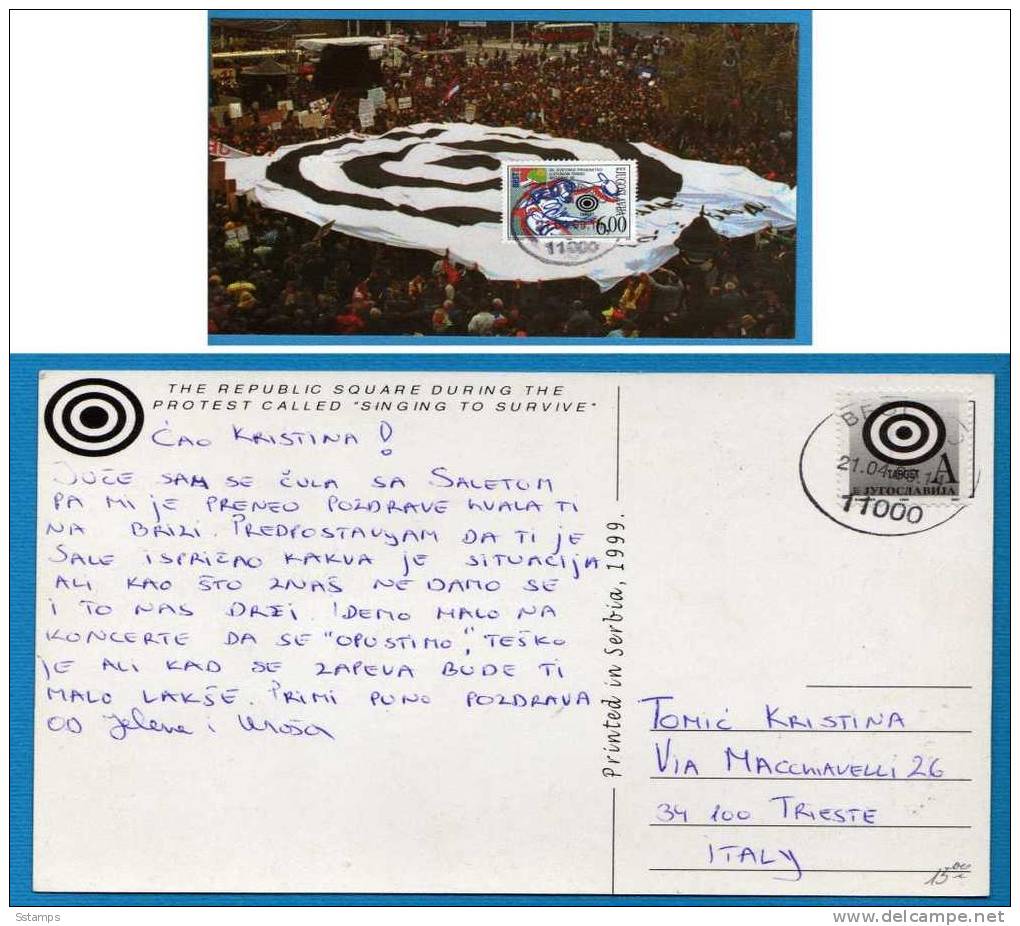 BEST
JUGOSLAVIJA
6,00
11000
THE REPUBLIC SQUARE DURING THE
PROTEST CALLED "SINGING TO SURVIVE"
ĆAO KRISTINA!
JUČE SAM SE ČULA SA SALETOM
PA MI JE PRENEO POZDRAVE HVALA TI
NA BRIZI. PREDPOSTAVJAM DA TI JE
SALE ISPRIČAO KAKVA JE SITUACIJA
ALI KAO ŠTO ZNAŠ NE DAMO SE
I TO NAS DRŽI. IDEMO MALO NA
KONCERTE DA SE "OPUSTIMO", TEŠKO
JE ALI KAD SE ZAPEVA BUDE TI
MALO LAKŠE. PRIMI PUNO POZDRAVA
OD Jelene i Uroša
Printed in Serbia, 1999.
TARGET
A
ЈУГОСЛАВИЈА
21.04.
11000
TOMIĆ KRISTINA
VIA MACCHIAVELLI 26
34 100 TRIESTE
ITALY
15
Sstamps
www.delcampe.net